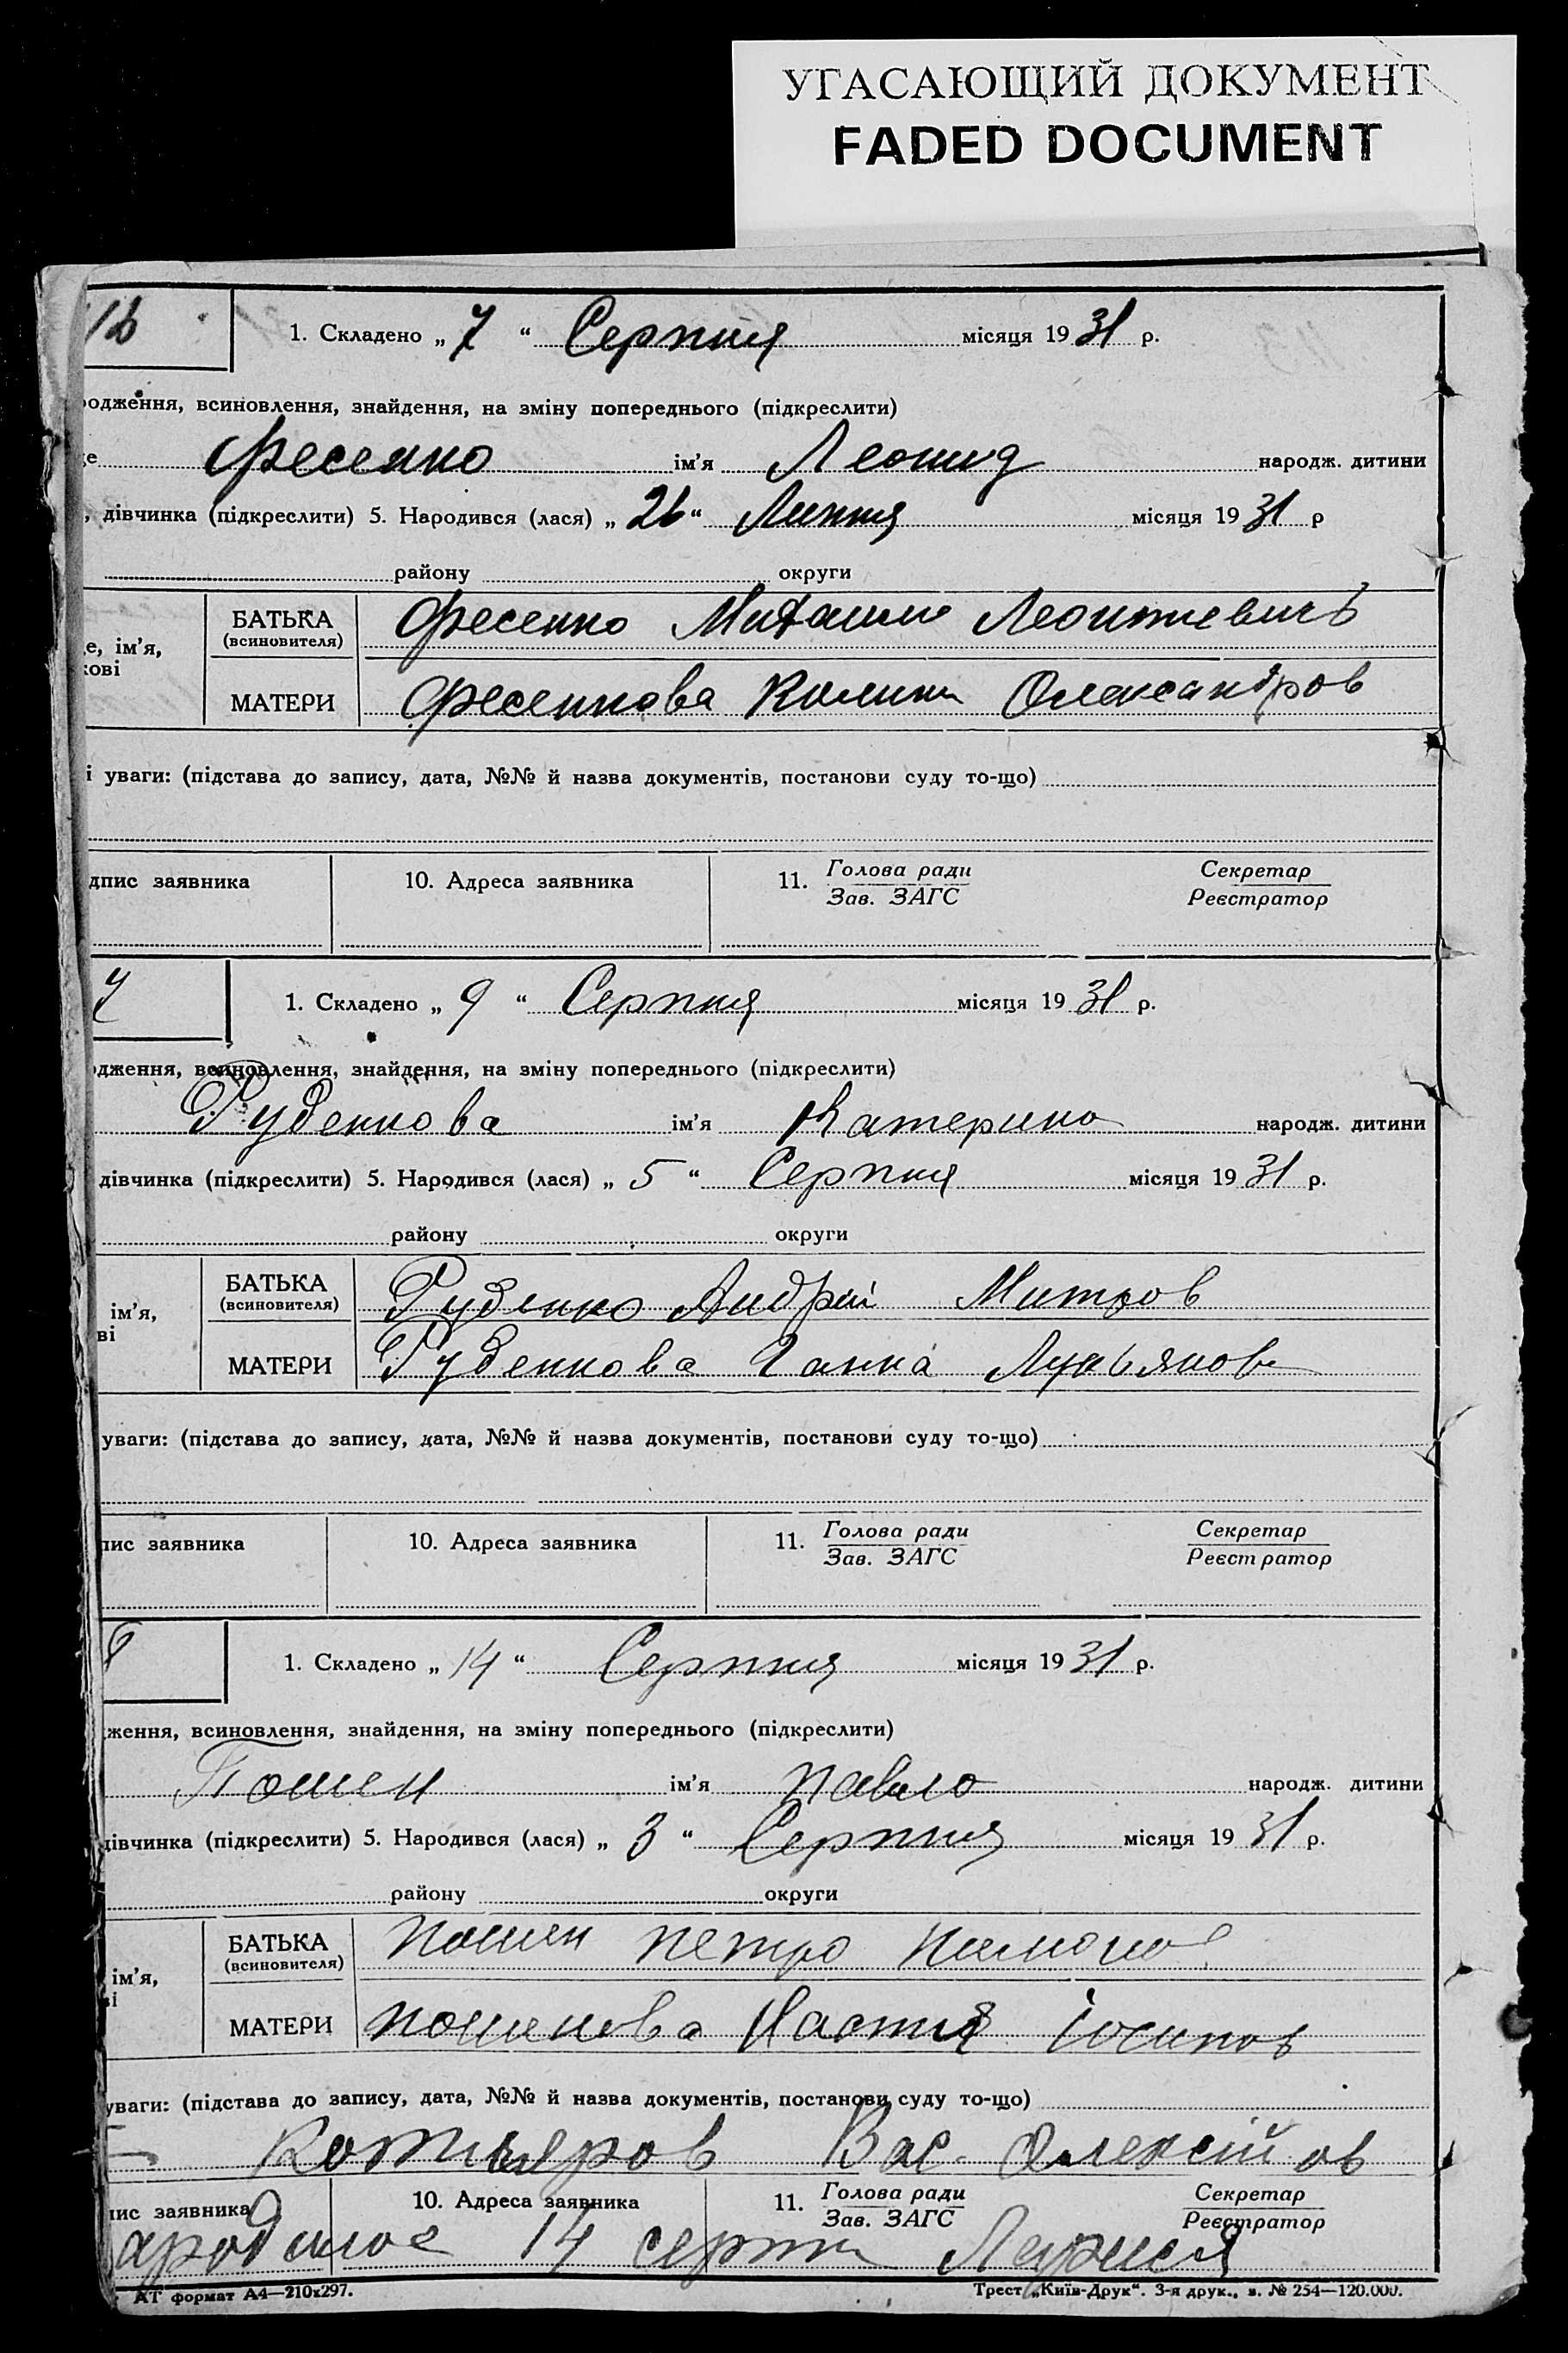 УГАСАЮЩИЙ ДОКУМЕНТ
FADED DOCUMENT
1. Складено „ 7 “ Серпня місяця 19 31 р.
одження, всиновлення, знайдення, на зміну попереднього (підкреслити)
е Фесенко ім'я Леонид народж. дитини
, дівчинка (підкреслити) 5. Народився (лася) „ 26 “ Липня місяця 19 31 р
району округи
БАТЬКА Фесенко Леонтиевичь
(всиновителя)
е, ім'я,
кові
МАТЕРИ Фесенкова Олександров
і уваги: (підстава до запису, дата, №№ й назва документів, постанови суду то-що)
дпис заявника 10. Адреса заявника 11. Голова ради Секретар
Зав. ЗАГС Реєстратор
7 1. Складено „ 9 “ Серпня місяця 19 31 р.
дження, всиновлення, знайдення, на зміну попереднього (підкреслити)
Руденкова ім'я Катерина народж. дитини
дівчинка (підкреслити) 5. Народився (лася) „ 5 “ Серпня місяця 19 31 р.
району округи
БАТЬКА Руденко Андрій Митров
(всиновителя)
ім'я,
ві
МАТЕРИ Руденкова Ганна Лукьянов
уваги: (підстава до запису, дата, №№ й назва документів, постанови суду то-що)
пис заявника 10. Адреса заявника 11. Голова ради Секретар
Зав. ЗАГС Реєстратор
8 1. Складено „ 14 “ Серпня місяця 19 31 р.
ження, всиновлення, знайдення, на зміну попереднього (підкреслити)
Пошен ім'я Павло народж. дитини
дівчинка (підкреслити) 5. Народився (лася) „ 3 “ Серпня місяця 19 31 р.
району округи
БАТЬКА Пошен Петро
(всиновителя)
ім'я,
ві
МАТЕРИ Пошенова Настия Іосипов
уваги: (підстава до запису, дата, №№ й назва документів, постанови суду то-що)
Котляров Вас. Олексійов
пис заявника 10. Адреса заявника 11. Голова ради Секретар
Зав. ЗАГС Реєстратор
14 серпня
АТ формат А4—210х297. Трест „Київ-Друк“. 3-я друк., з. № 254—120.000.